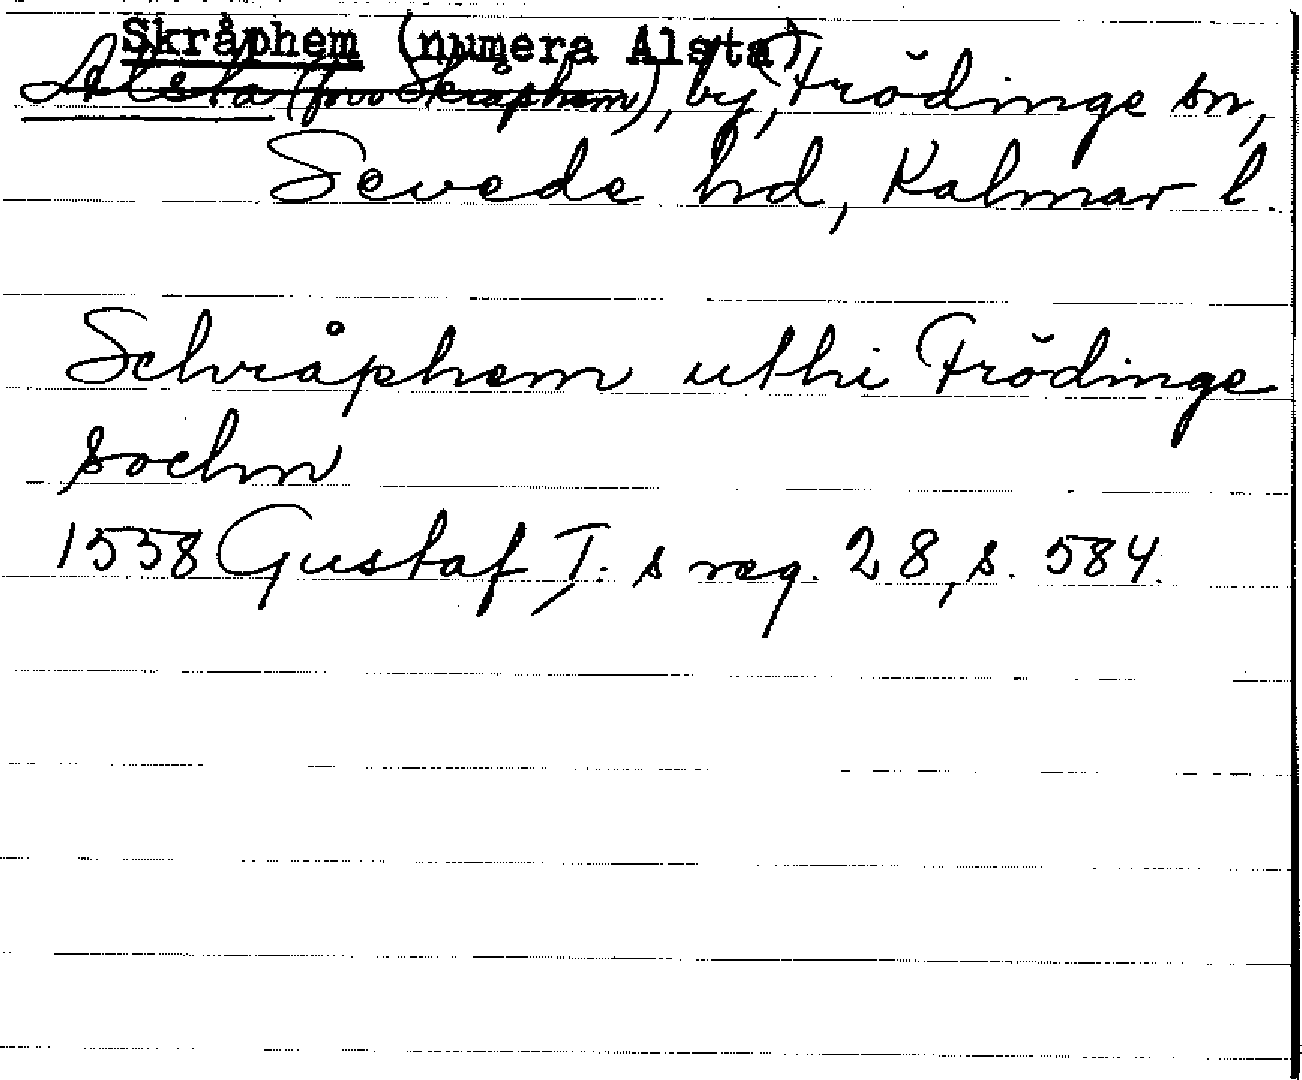 Skråphem (numera Alsta)
Alsta (förr Skråphem), by, Frödinge sn,
Sevede hd, Kalmar l.
Schråphem uthi Frödinge
sochn
1558 Gustaf I.s reg. 28, s. 584.